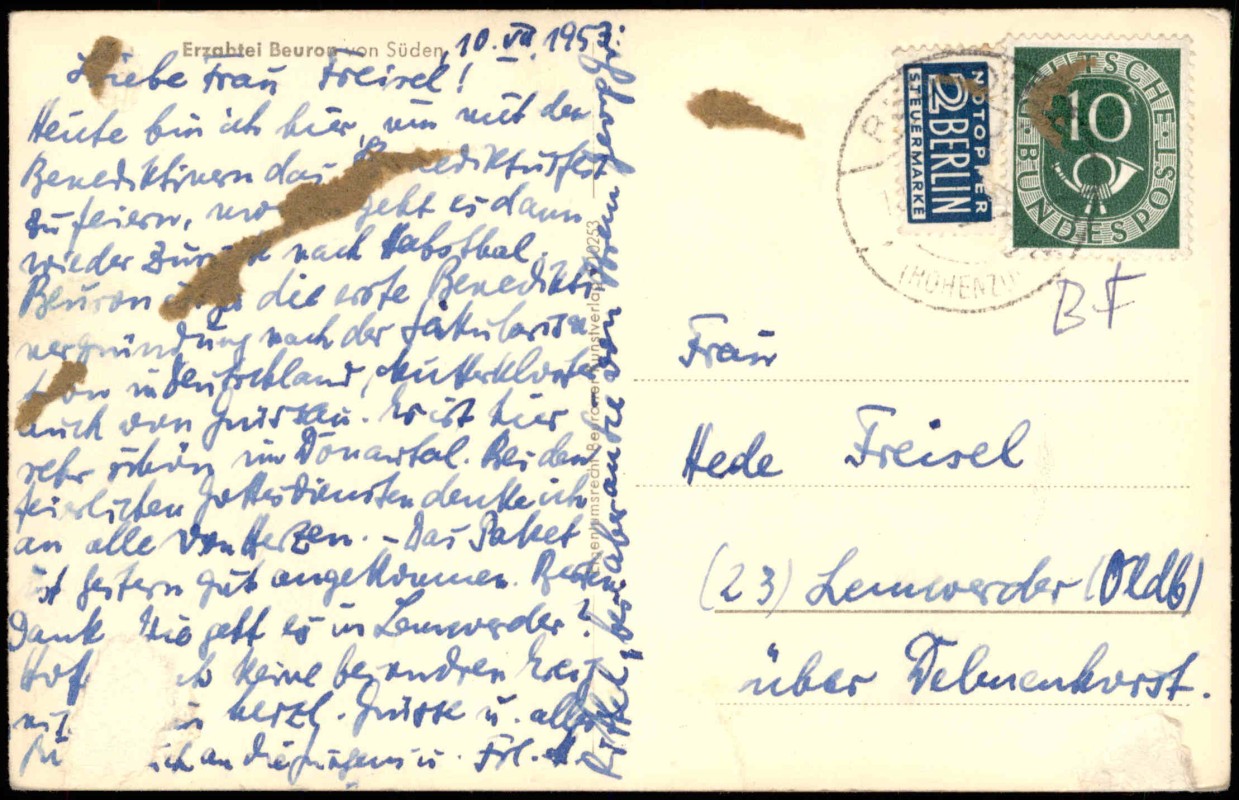 Erzabtei Beuron von Süden
10. VII. 1953.
Liebe Frau Freisel!
Heute bin ich hier, um mit den
Benediktinern das Benediktusfest
zu feiern, geht es dann
wieder zurück nach Habsthal.
Beuron die erste Benedikti
nergründung nach der Säkularisa
tion in Deutschland, Mutterkloster
auch von Grüssau. Es ist hier
sehr schön im Donautal. Bei den
feierlichen Gottesdiensten denke ich
an alle von Herzen. – Das Paket
ist gestern gut angekommen. Besten
Dank. Wie geht es in Lemwerder?
keine besondren
herzl. Grüsse u. alles
auch an die Jungens u. Frl.
aber an Sie von Ihrem
Eigentumsrecht Beuroner Kunstverlag 0253
NOTOPFER
2 BERLIN
STEUERMARKE
DEUTSCHE
BUNDESPOST
10
(HOHENZ
BF
Frau
Hede Freisel
(23) Lemwerder (Oldb)
über Delmenhorst.